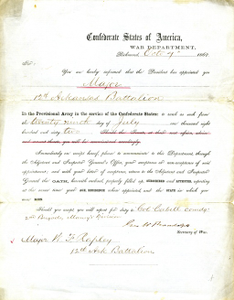 Confederate States of America,
WAR DEPARTMENT,
Richmond, Oct 4th 186
Sir:
You are hereby informed that the President has appointed you
Major
12th Arkansas Battalion
In the Provisional Army in the service of the Confederate States: to rank as such from
the twenty ninth day of July one thousand eight
hundred and sixty two. Should the Senate, at their next session, advise
and consent thereto, you will be commissioned accordingly.
Immediately on receipt hereof, please to communicate to this Department, through
the Adjutant and Inspector General's Office, your acceptance or non-acceptance of said
appointment; and with your letter of acceptance, return to the Adjutant and Inspector
General the OATH, herewith enclosed, properly filled up, SUBSCRIBED and ATTESTED, reporting
at the same time your AGE, RESIDENCE when appointed, and the STATE in which you
were BORN.
Should you accept, you will report for duty to Col. Cabell comdg
2d Brigade
Geo W Randolph
Secretary of War.
Major W. F. Rapley
12th Ark Battalion